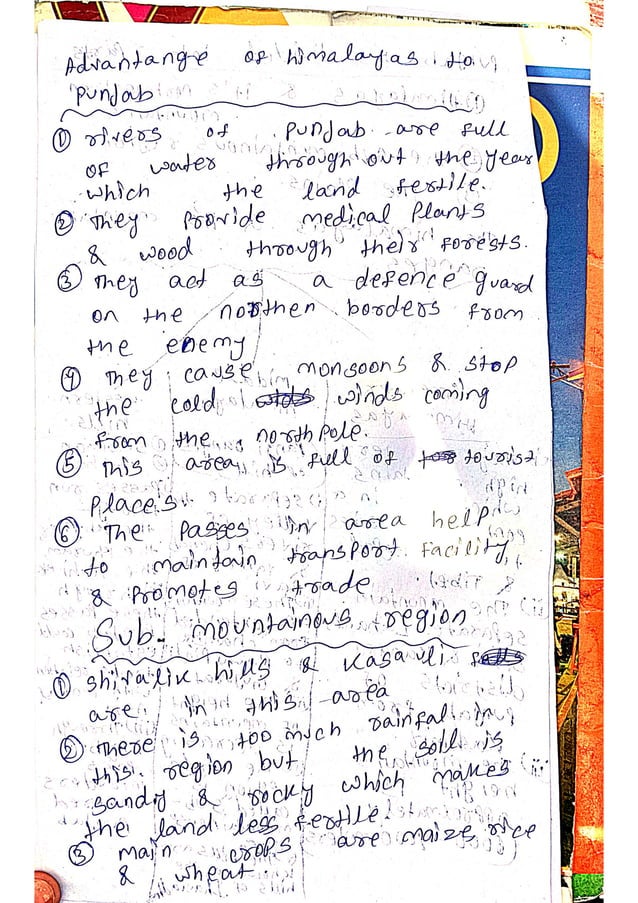 Advantange of himalayas to
Punjab
① rivers of Punjab are full
of water through out the year
which the land fertile.
② They Provide medical Plants
& wood through their forests.
③ They act as a defence guard
on the northen borders from
the enemy
④ They cause monsoons & stop
the cold winds coming
from the north Pole.
⑤ This area is full of tourist
Places.
⑥ The Passes in area help
to maintain transport facility
& Promotes trade
Sub. mountainous region
① Shivalik hills & Kasauli
are in this area
② There is too much rainfall in
this region but the soil is
sandy & rocky which makes
the land less fertile.
③ main crops are maize, rice
& wheat